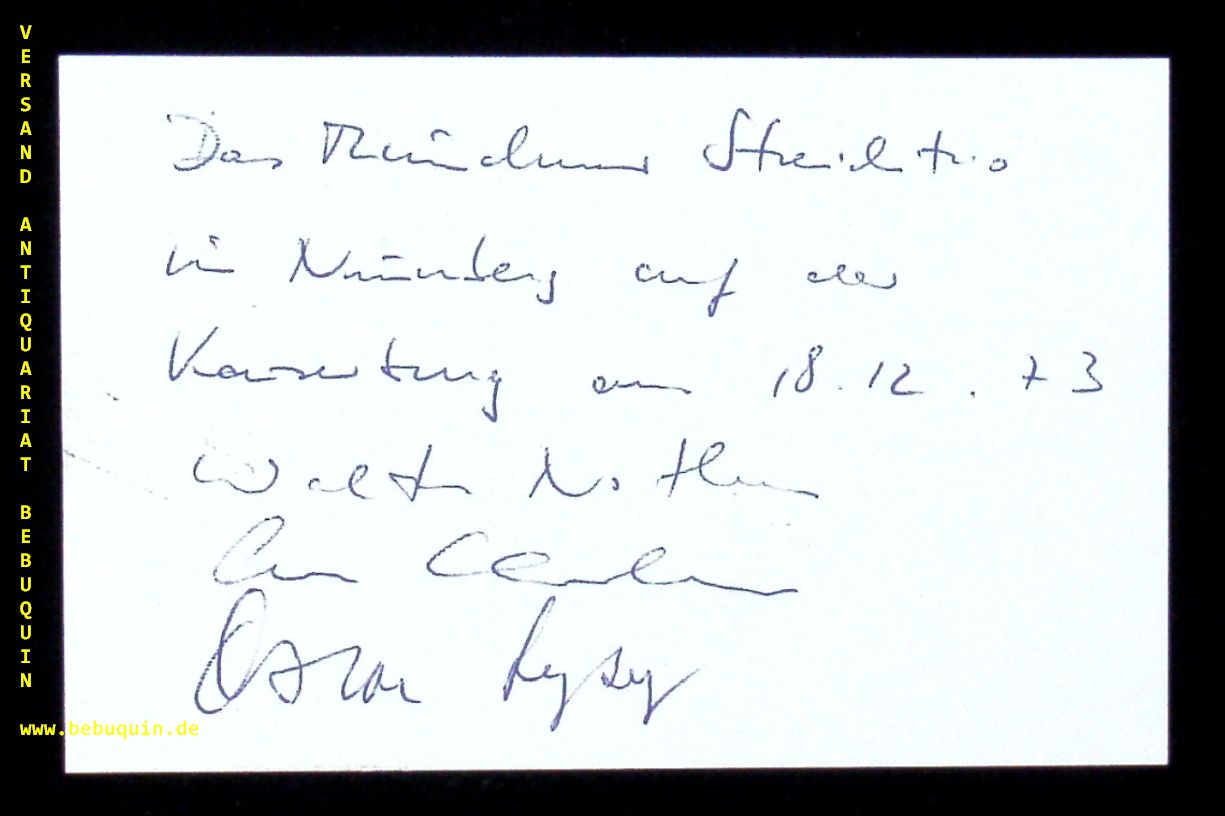 VERSAND ANTIQUARIAT BEBUQUIN
Das Münchner Streichtrio
in Nürnberg auf der
Kaiserburg am 18.12.73
Walter Nothas
Oscar Lysy
www.bebuquin.de